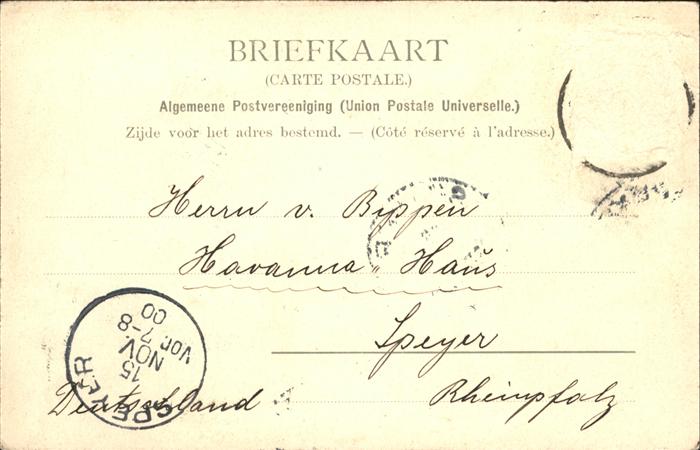 BRIEFKAART
(CARTE POSTALE.)
Algemeene Postvereeniging (Union Postale Universelle.)
Zijde voor het adres bestemd. — (Côté réservé à l'adresse.)
Herrn v. Bippen
Havanna-Haus
Speyer
Rheinpfalz
Deutschland
SPEYER
15
NOV.
VOR. 7-8
00